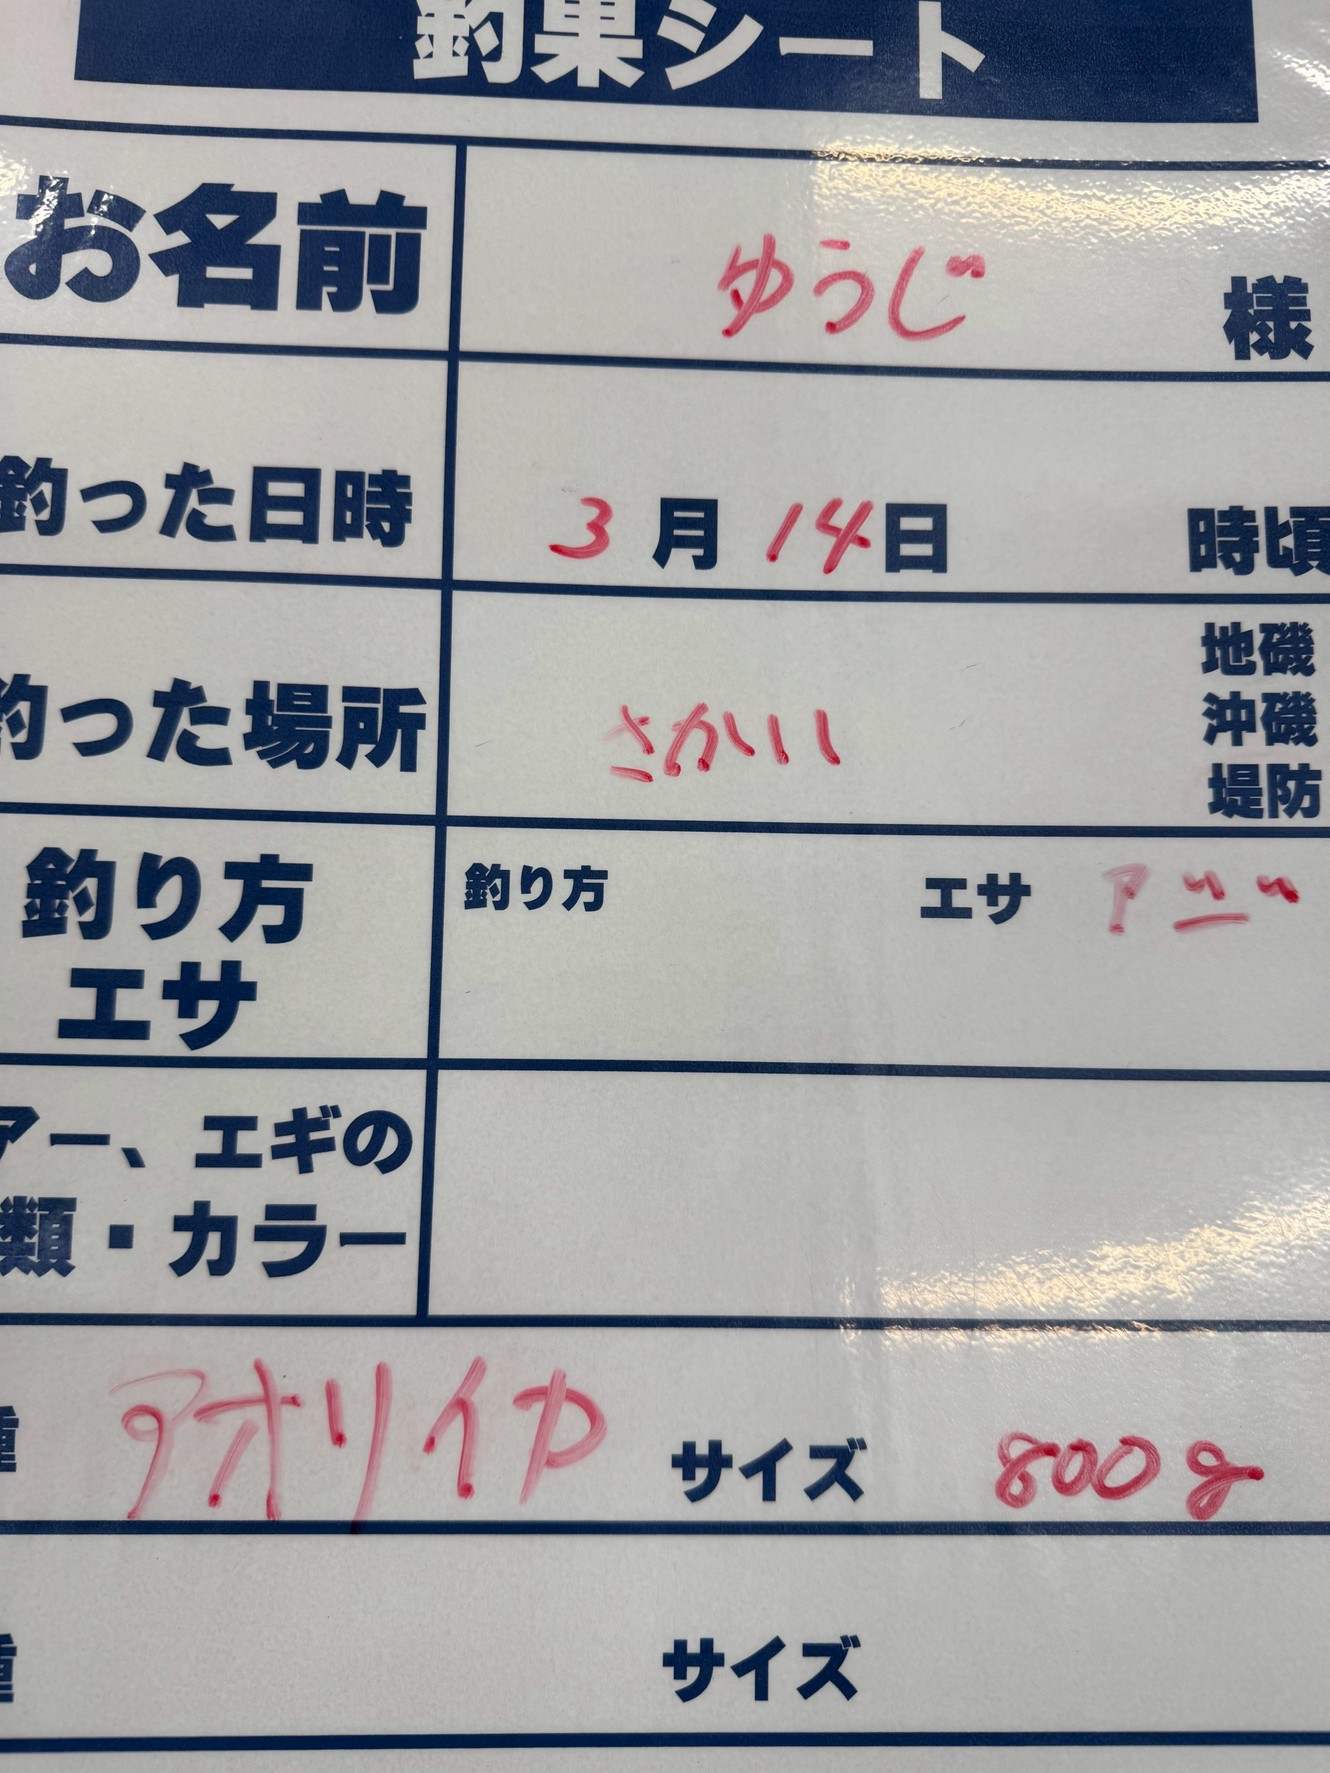 釣果シート
お名前 ゆうじ 様
釣った日時 3月14日 時頃
釣った場所 さかい 地磯
沖磯
堤防
釣り方 釣り方 エサ
エサ
アー、エギの
類・カラー
種 アオリイカ サイズ 800g
種 サイズ